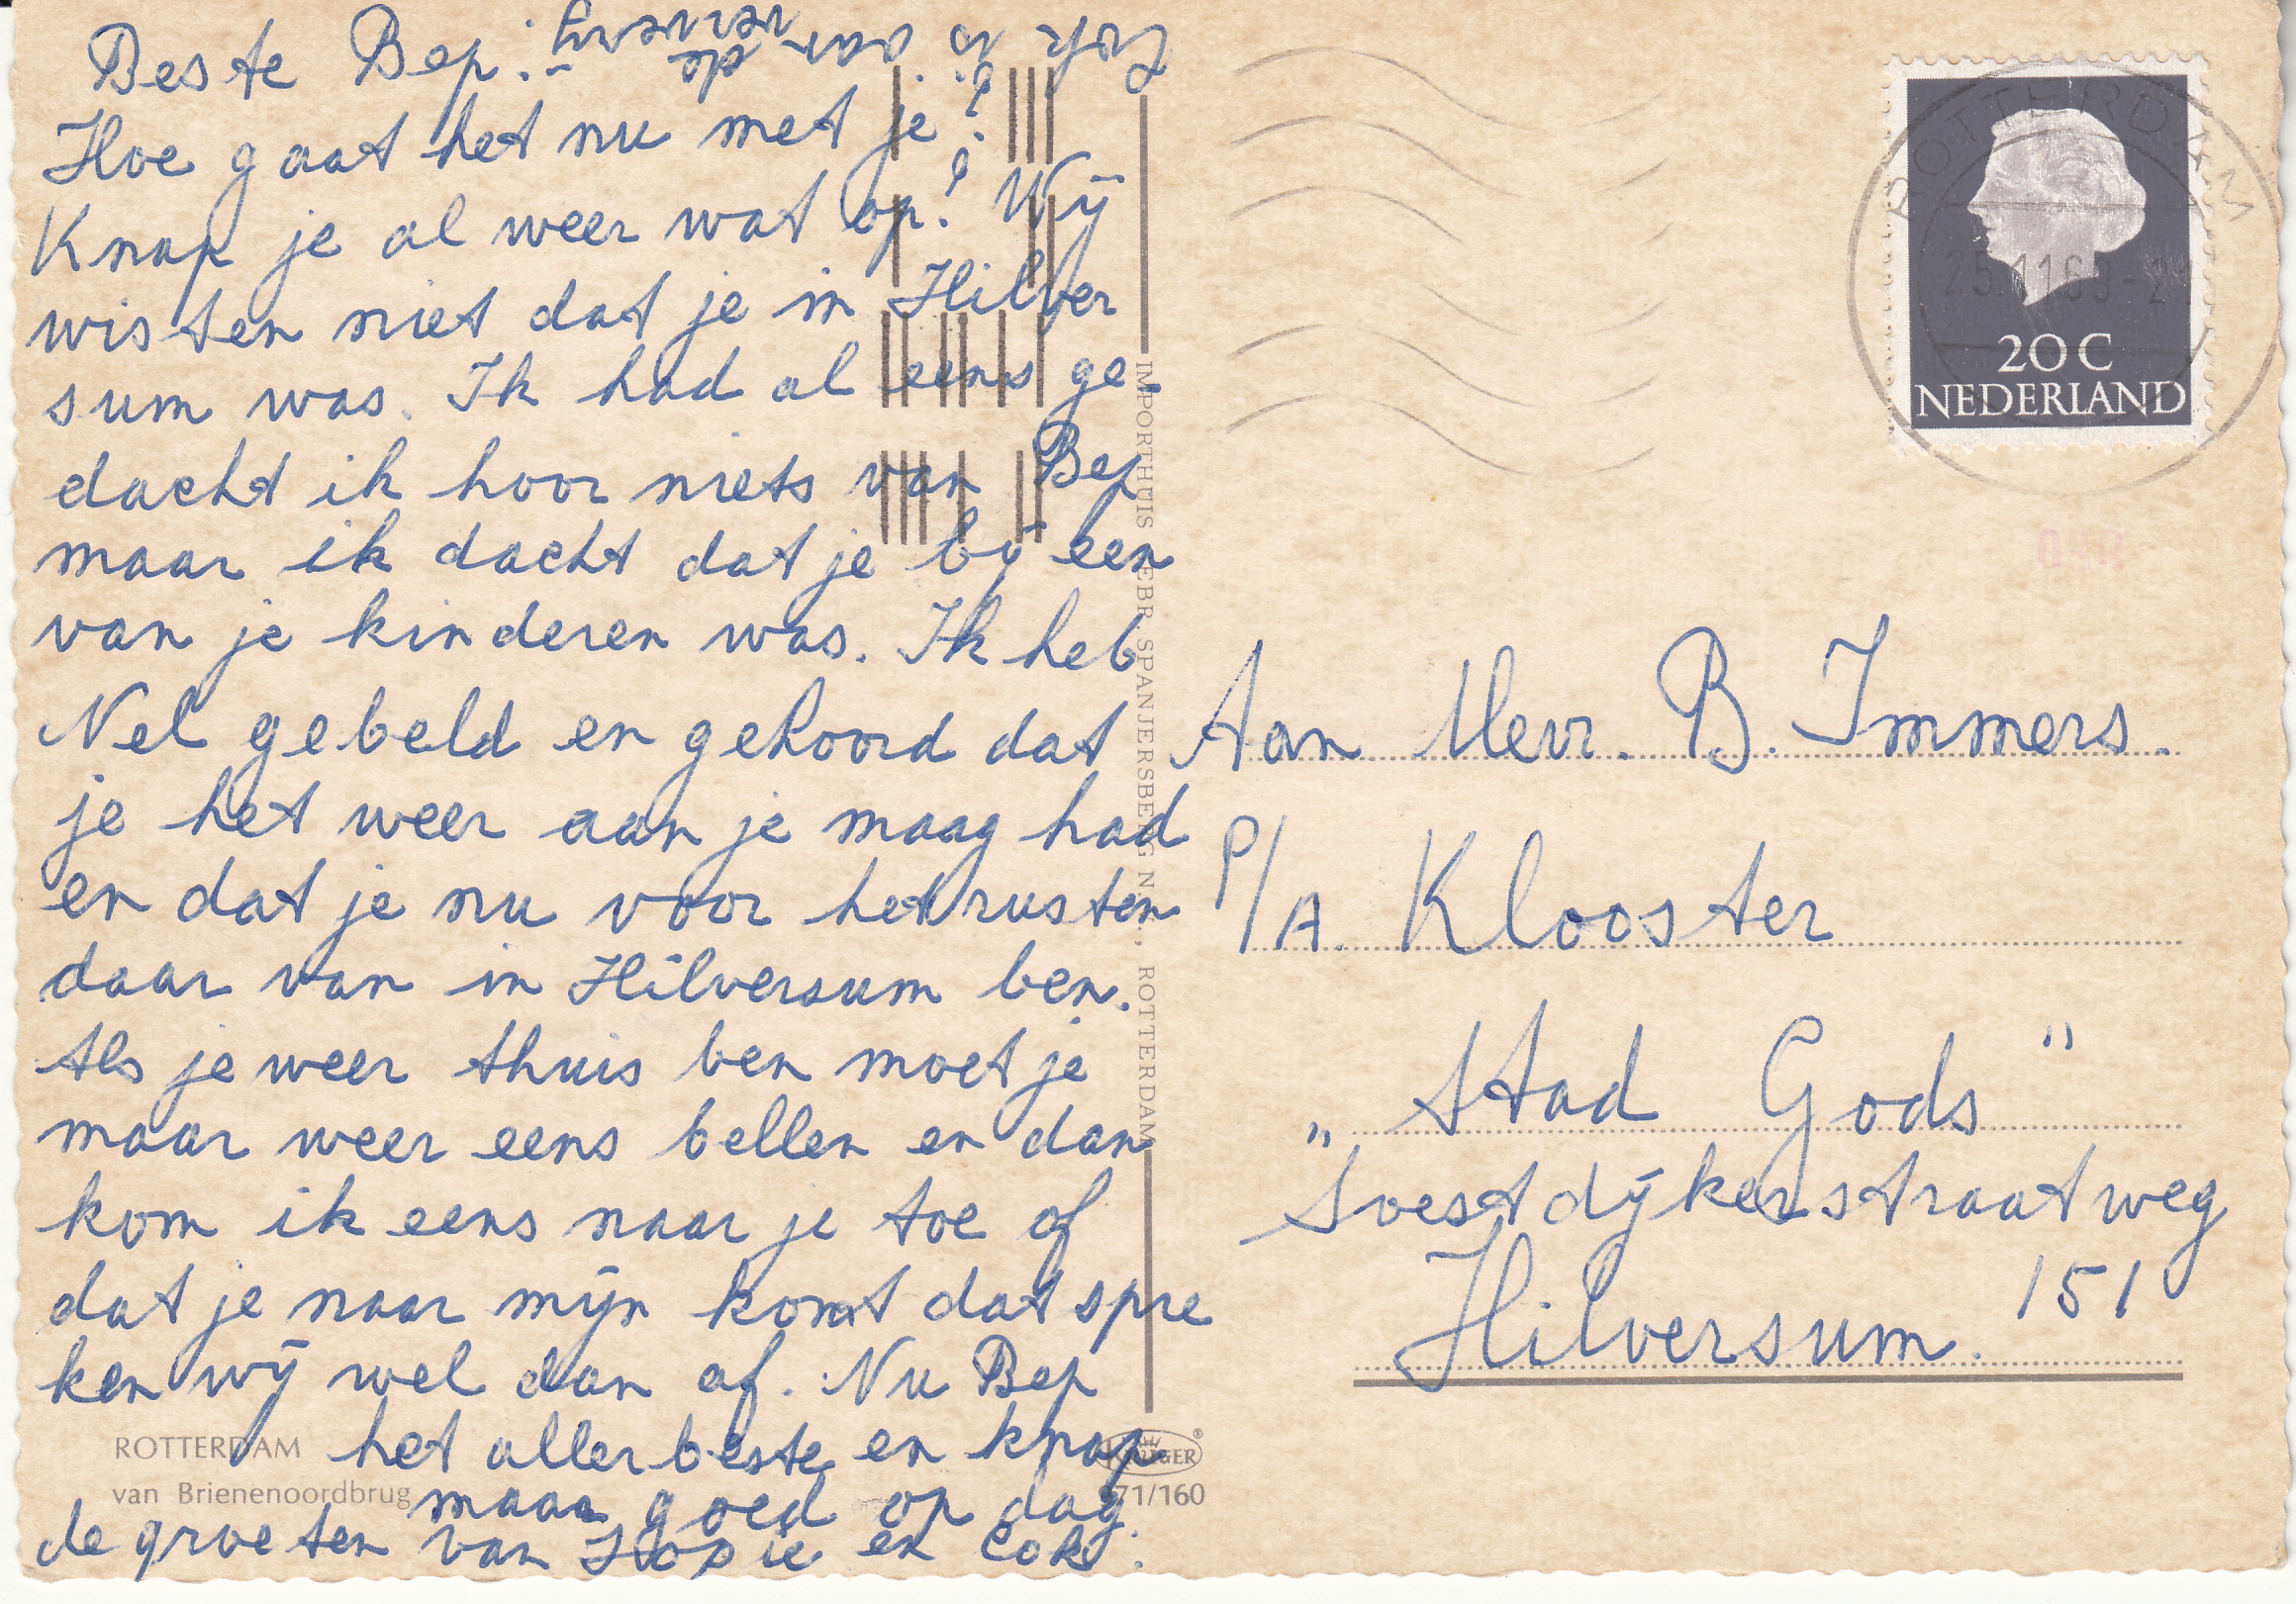 Beste Bep.
Hoe gaat het nu met je?
Knap je al weer wat op? Wij
wisten niet dat je in Hilver
sum was. Ik had al eens ge-
dacht ik hoor niets van Bep
maar ik dacht dat je bij een
van je kinderen was. Ik heb
Nel gebeld en gehoord dat
je het weer aan je maag had
en dat je nu voor het rusten
daar van in Hilversum ben.
Als je weer thuis ben moet je
maar weer eens bellen en dan
kom ik eens naar je toe of
dat je naar mijn komt dat spre
ken wij wel dan af. Nu Bep
het allerbeste en knap
maar goed op dag.
de groeten van en Cok.
Cok is aan de
ROTTERDAM
van Brienenoordbrug
IMPORTHUIS GEBR. SPANJERSBERG N.V., ROTTERDAM
KRÜGER
971/160
ROTTERDAM
20 C
NEDERLAND
Aan Mevr. B. Immers.
P/A. Klooster
„Stad Gods"
Soestdijkerstraatweg
151
Hilversum.